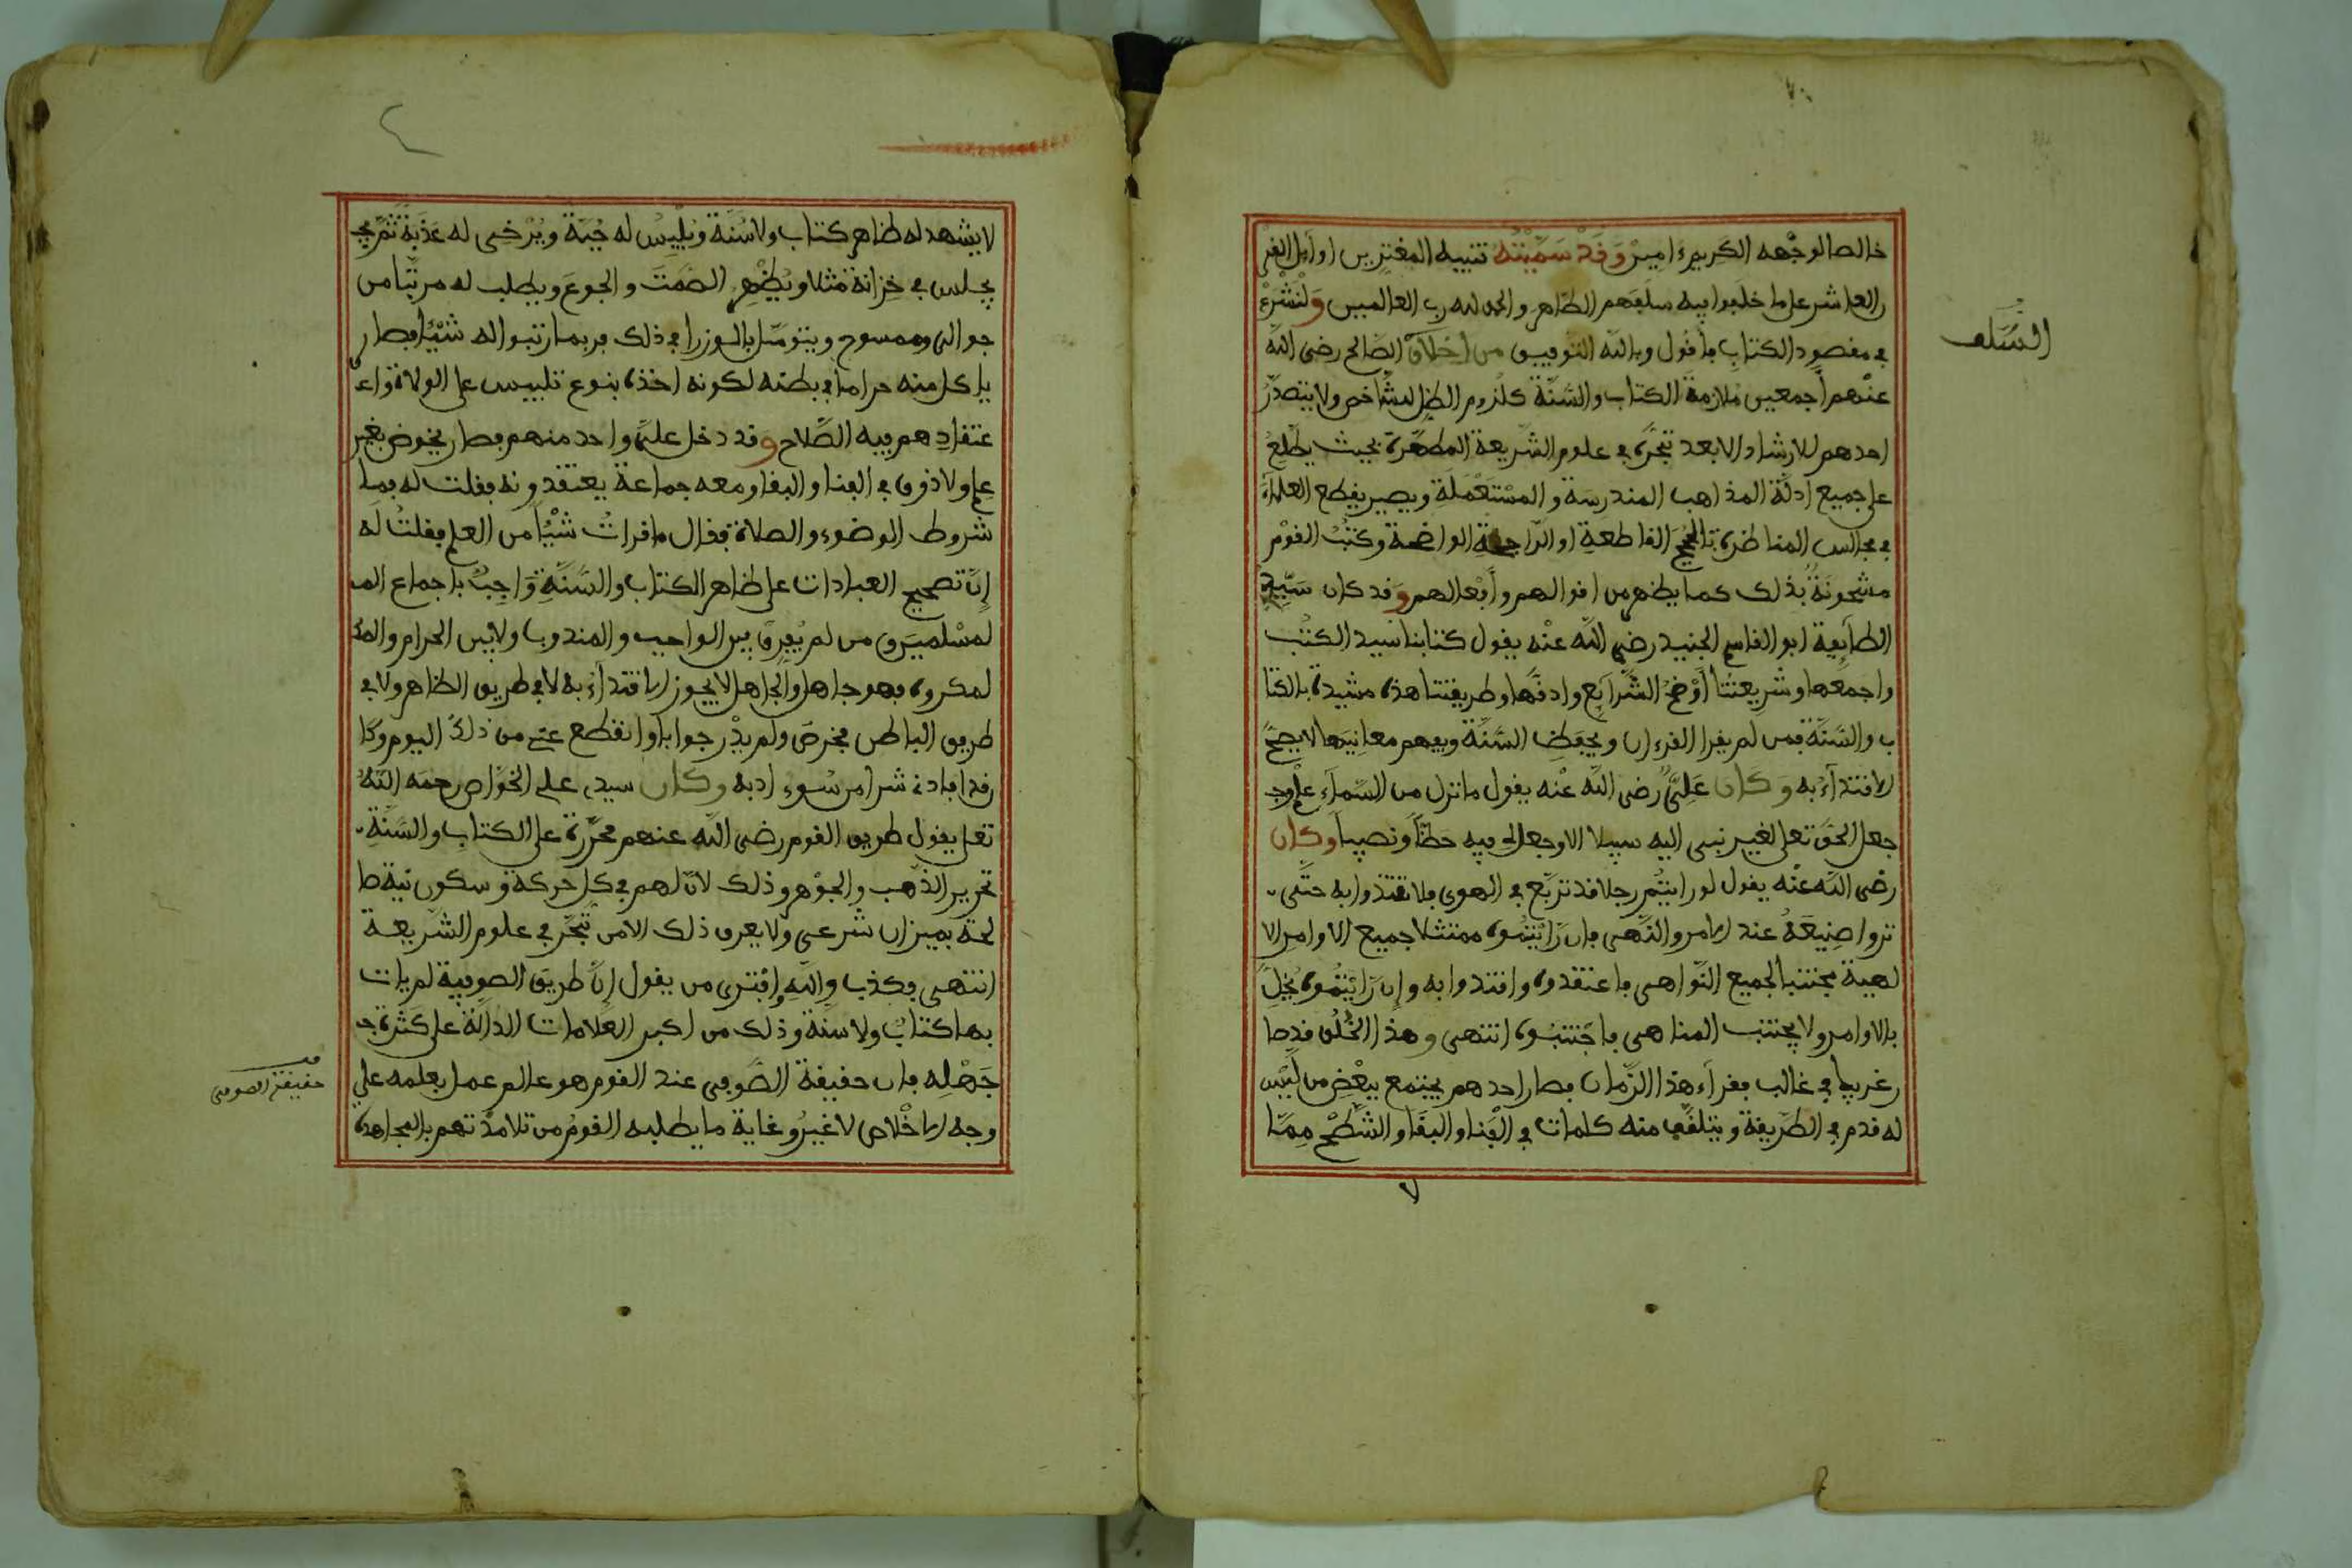 خالصا لوجهه الكريم ءامين وَقَدْ سَمَّيْتُهُ تنبيه المغترين اوايل القرن
العاشر على ما خلفوا فيه سلفهم الطاهر والحمد لله رب العالمين وَلْنَشْرَعْ
في مقصود الكتاب فأقول وبالله التوفيق من اخلاق الصالح رضي الله
السَّلف
عنهم أجمعين ملازمة الكتاب والسُّنَّة كلزوم الظل للشاخص ولا يتصدَّرُ
احدهم للارشاد الا بعد تبحّره في علوم الشَّريعة المطهَّرة بحيث يطَّلع
على جميع أدلَّة المذاهب المندرسة والمسْتَعْمَلة ويصير يقطع العلماءَ
في مجالس المناظرة بالحُجَج القاطعة او الرَّاجحة الواضحة وكتبُ القوْم
مشحونةٌ بذلك كما يظهر من اقوالهم وأفعالهم وقد كان سَيِّد
الطايفة ابو القاسم الجنيد رضي الله عنْه يقول كتابنا سيد الكتب
واجمعها وشريعتُنا أوْضحُ الشَّرايع وادقُّها وطريقتنا هذه مشيدة بالكتا
ب والسُّنَّة فمن لم يقرا القرءان ويحفظ السُّنَّة ويفهم معانِيَها لا يصحُّ
الاقتدآءُ به وَكَان عَلِيٌّ رضي الله عنْه يقول ما نزل من السَّماءِ علْم وجـ
جعل الحقُّ تعلى لغير نبي اليه سبيلا الا وجعل لي فيه حظّاً ونصيباً وكان
رضي الله عنْه يقول لو رايتُم رجلا قد تربَّع في الهوى فلا تقتدوا به حتَّى
تروا صنِيعَهُ عند الامر والنَّهي فان رَايْتُمُوه ممتثلا جميع الاوامر الا
لهية مجتنبا لجميع النَّواهي فاعتقدوه واقتدوا به وإن رَايْتُمُوه يُخِلُّ
بالاوامر ولا يجتنب المناهي فاجْتنبُوه انتهى وهذا الخُلُق قد صا
ر غريبا في غالب فقرآء هذا الزَّمان فصار احدهم يجتمع ببعْض من ليْس
له قدم في الطَّريقة ويتلقَّف منه كلمات في الْفَنا والبقَا والشَّطْح مِمَّا
لا يشهد له ظاهر كتاب ولا سُنَّة ويُلْبِسُ له جُبَّة ويُرْخى له عَذَبةً ثم يجـ
يجلس في خِزانة مثلا ويُظْهِر الصَّمت والجوعَ ويطلب له مرتّبا من
جوالى ومسموح ويتوسَّل بالوزرا في ذلك فربما رتبوا له شيْئا فصار
ياكل منه حراما في بطنه لكونه اخذه بنوع تلبيس على الولاة واعـ
عتقادهم فيه الصَّلاح وقد دخل عليَّ واحد منهم فصار يخوض بغير
علم ولا ذوق في الفنا والبقا ومعه جماعة يعتقدونه فقلت له فما
شروط الوضوء والصلاة فقال ما قرات شيْئاً من العلم فقلتُ له
إنَّ تصحيح العبادات على ظاهر الكتاب والسُّنَّةِ وَاجِبٌ باجماع المـ
لمسْلمين ومن لم يُفرِق بين الواجب والمندوب ولا بين الحرام والمـ
لمكروه فهو جاهل والجاهل لا يجوز الاقتدآءُ به لا في طريق الظاهر ولا في
طريق الباطن فخرص ولم يدْر جوابا وانقطع عني من ذلك اليوم وكا
ن قد افاد نى شرا من سُوء ادبه وكان سيدي على الخوَّاص رحمه اللَّهُ
تعلى يقول طريق القوم رضي الله عنهم محرَّرة على الكتاب والسُّنَّةِ
تحرير الذَّهب والجوْهر وذلك لانَّ لهم في كل حركة وسكون نيةً صا
لحة بميزان شرعي ولا يعرف ذلك الا من تبحَّر في علوم الشَّريعة
انتهى وكذب واللَّهِ وافترى من يقول إنَّ طريق الصوفية لم يات
بها كتابٌ ولا سنة وذلك من اكبر العلامات الدالَّة على كثرة جـ
جَهْلِه فان حقيقة الصُّوفى عند القوم هو عالم عمل بعلمه على
قف حقيقة الصوفى
وجه الاخْلاص لا غيرُ وغاية ما يطلبه القوْمُ من تلامذتهم بالمجاهدة